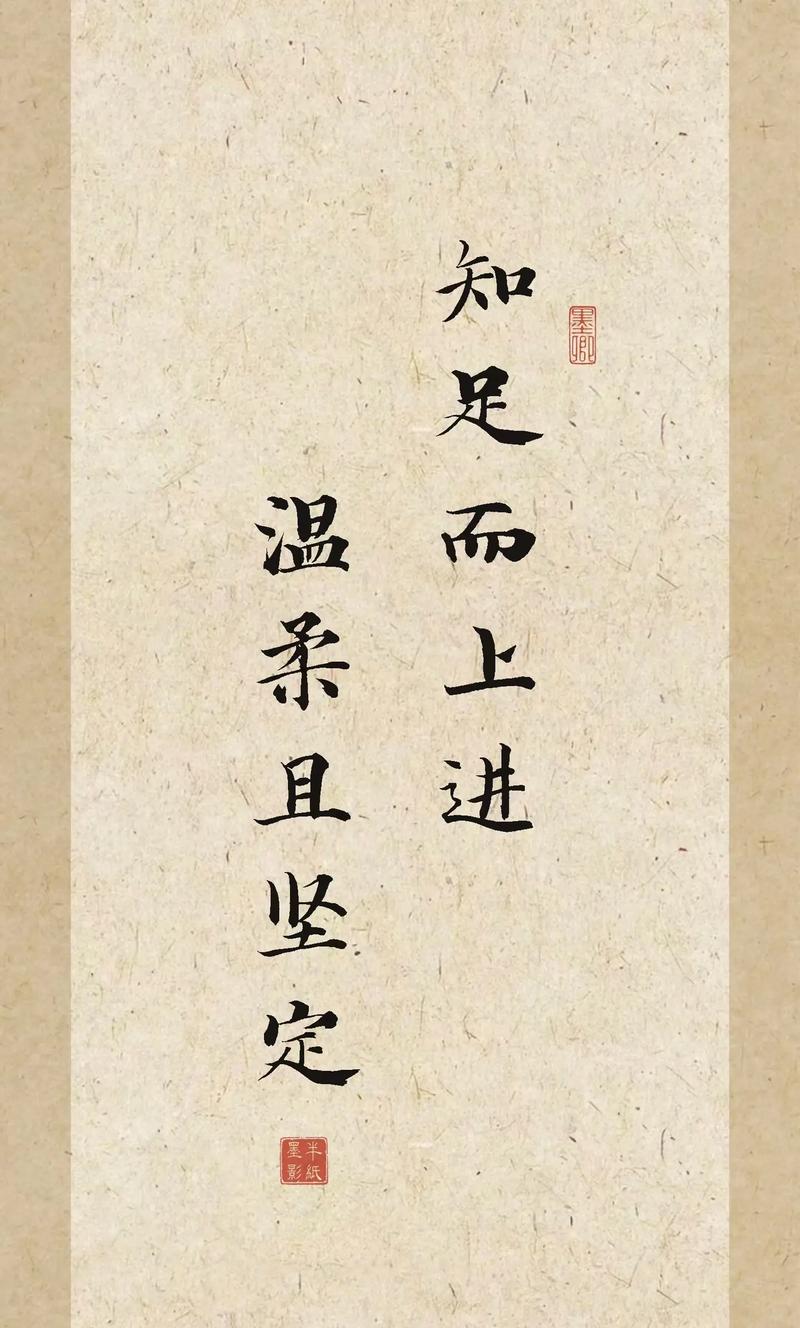 知足而上进
温柔且坚定
墨卿
半纸墨影